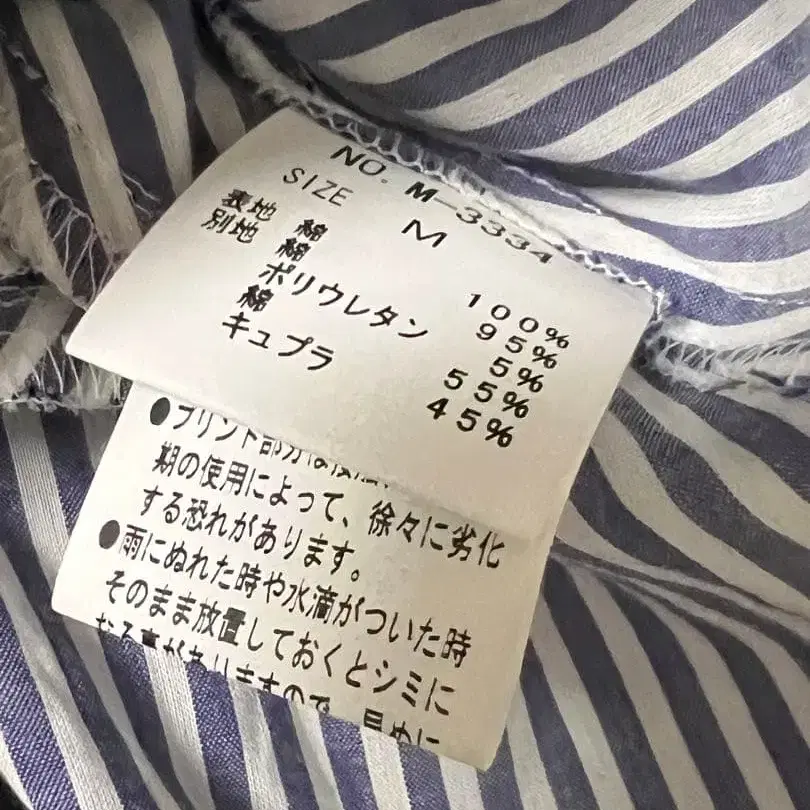 NO. M-3334
SIZE M
表地 綿 100%
別地 綿 95%
ポリウレタン 5%
綿 55%
キュプラ 45%
●プリント部分は
期の使用によって、徐々に劣化
する恐れがあります。
●雨にぬれた時や水滴がついた時
そのまま放置しておくとシミに
なる事がありますので、早めに